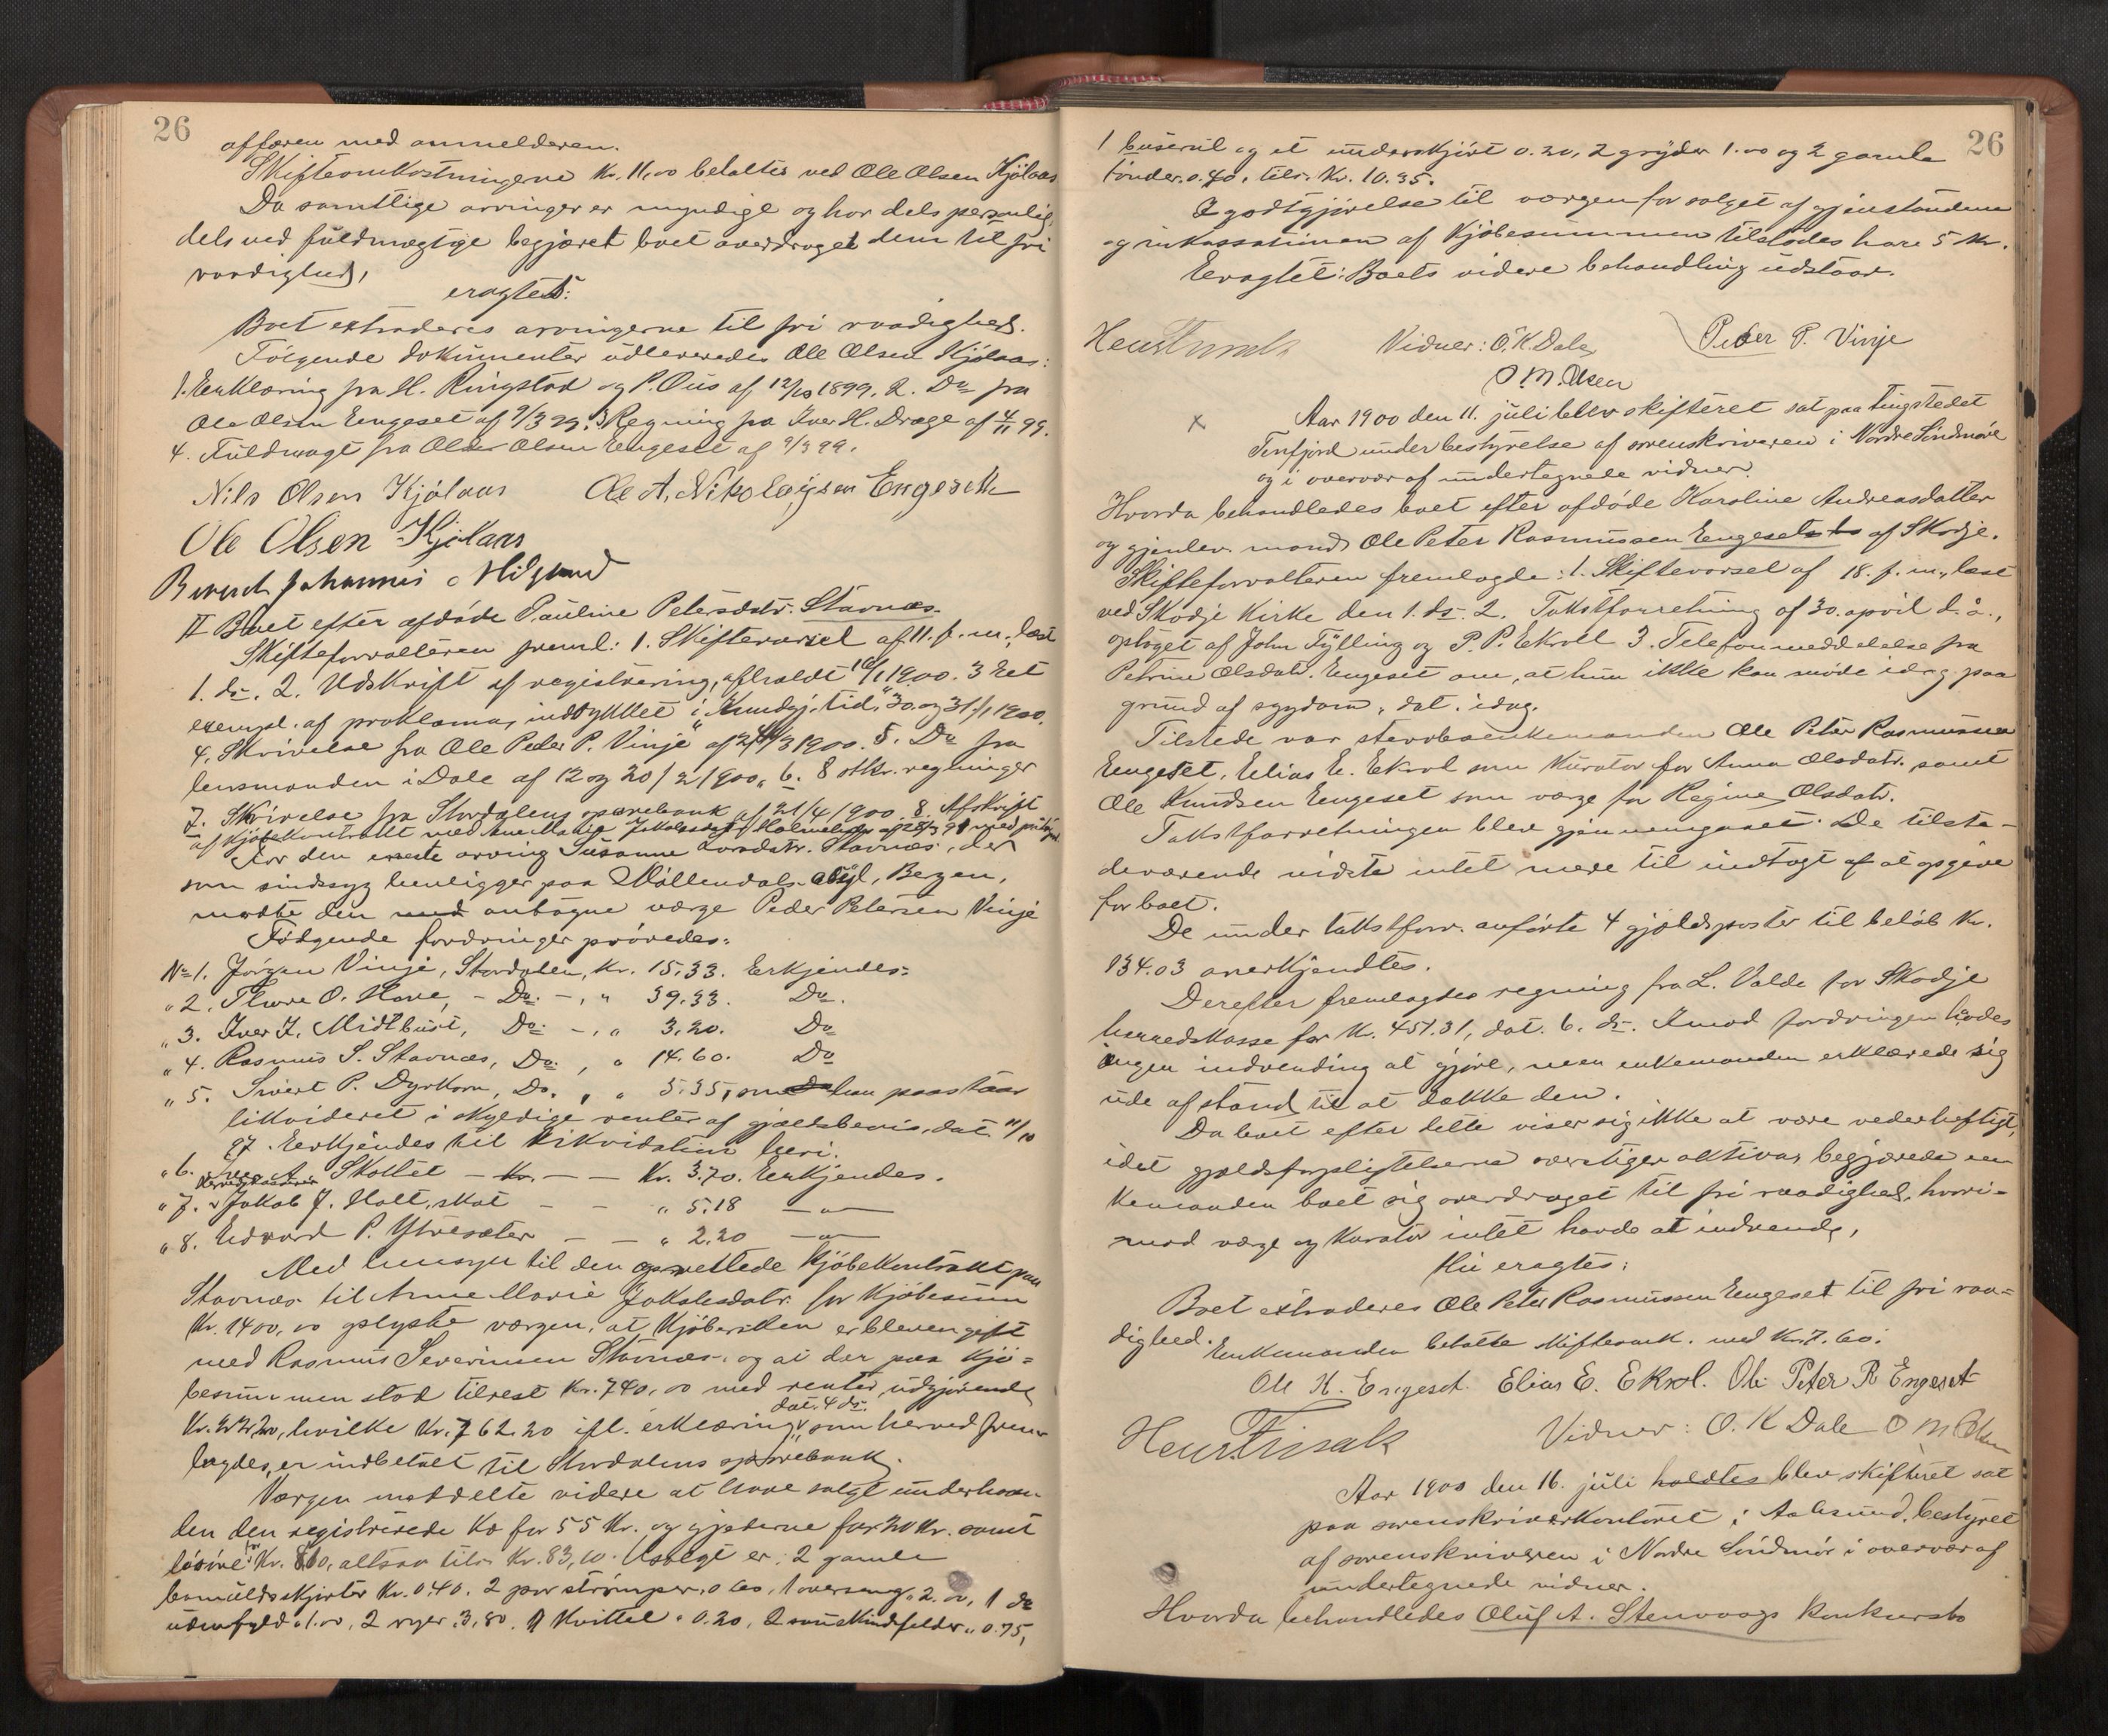 26
affæren med anmelderen.
Skifteomkostningerne Kr. 11,00 betaltes ved Ole Olsen Kjölaas
Da samtlige arvinger er myndige og har dels personlig,
dels ved fuldmægtige begjæret boet overdraget dem til fri
raadighed,
eragtet:
Boet extraderes arvingerne til fri raadighed.
Fölgende dokumenter udleveredes Ole Olsen Kjölaas:
1. Erklæring fra H. Ringstad og P. Ous af 12/10 1899. 2. Do fra
Ole Olsen Engeset af 9/3 99. 3 Regning fra Iver H. Drage af 4/11 99.
4. Fuldmagt fra Olsen Engeset af 9/3 99.
Nils Olsen Kjölaas Ole A. Nikolaysen Engeseth
Ole Olsen Kjölaas
Johannes
II Boet efter afdöde Pauline Petersdatr. Stavnæs.
Skifteforvalteren freml: 1. Skiftevarsel af 11. f. m., læst
1. ds. 2. Udskrift af registrering, afholdt 1900. 3 Et
exempl. af proklama, indrykket i "Kundgj. tid." 30 og 31/1 1900.
4. Skrivelse fra Ole Peder P. Vinje af 1900. 5. Do fra
lensmanden i Dale af 12 og 20/2 1900. 6. 8 stkr. regninger
7. Skrivelse fra Stordalens sparebank af 21/4 1900. 8. Afskrift
af kjöbekontrakt med Ane Marie Jakobsdatr.
For den eneste arving Susanne Stavnæs, der
som sindssyg henligger paa Möllendals asyl, Bergen,
mödte den antagne værge Peder Petersen Vinje
Fölgende fordringer prövedes:
No 1. Jörgen Vinje, Stordalen, Kr. 15.33. Erkjendes:
" 2. Thore O. Hove, - Do. -, " 39.33. Do.
" 3. Iver I. Midtbust, Do. -, " 3.20. Do
" 4. Rasmus S. Stavnæs, Do. , " 14.60. Do
" 5. Sivert P. Dyrkorn, Do. , " 5.35, som han paastaar
likvideret i skyldige renter af gjældsbevis, dat. 11/10
97. Erkjendes til likvidation heri.
" 6. Iver A. Skottet - Kr. - - Kr. 3.70. Erkjendes.
" 7. Jakob J. Holt, skat - - " 5.18 - " -
" 8. Edvard P. Ytresæter - - " 2.20 - " -
Med hensyn til den oprettede kjöbekontrakt paa
Stavnæs til Anne Marie Jakobsdatr. for kjöbesum
Kr. 1400,00 oplyste værgen, at kjöbersken er bleven gift
med Rasmus Severinsen Stavnæs, og at der paa kjö=
besummen stod tilrest Kr. 740,00 med renter, udgjörende
dat. 4 ds.
Kr. 22.20, hvilke Kr. 762.20 ifl. erklæring, som herved frem-
lagdes, er indbetalt til Stordalens sparebank.
Værgen meddelte videre at have solgt underhaan-
den den registrerede ko for 55 Kr. og gjederne for 20 Kr. samt
lösöre for Kr. 8.10, altsaa tils. Kr. 83,10. Usolgt er: 2 gamle
bomuldsskjorter Kr. 0.40. 2 par strömper 0.60, 1 overseng 2.00, 1 do
uden fyld 1.00, 2 ryer 3,80, 1 kvittel 0.20, 2 saueskindfelder 0.75,
26
1 buseril og et underskjört 0.20, 2 gryder 1.00 og 2 gamle
tönder 0.40, tils. Kr. 10.35.
I godtgjörelse til værgen for salget af gjenstandene
og inkassationen af kjöbesummen tilstodes ham 5 kr.
Eragtet: Boets videre behandling udstaar.
Vidner: O. K. Dale Peder P. Vinje
O. M. Olsen
x
Aar 1900 den 11. juli blev skifteret sat paa tingstedet
Tenfjord under bestyrelse af sorenskriveren i Nordre Söndmöre
og i overvær af undertegnede vidner.
Hvorda behandledes boet efter afdöde Karoline Andreasdatter
og gjenlev. mand Ole Peter Rasmussen Engeset af Skodje.
Skifteforvalteren fremlagde: 1. Skiftevarsel af 18. f. m., læst
ved Skodje kirke den 1. ds. 2. Takstforretning af 30. april d. å.,
optaget af John Fylling og P. P. Ekroll 3. Telefonmeddelelse fra
Petrine Olsdatr. Engeset om, at hun ikke kan möde idag paa
grund af sygdom, dat. idag.
Tilstede var stervboenkemanden Ole Peter Rasmussen
Engeset, Elias E. Ekrol som kurator for Anna Olsdatr. samt
Ole Knudsen Engeset som værge for Regine Olsdatr.
Takstforretningen blev gjennemgaaet. De tilste-
deværende vidste intet mere til indtægt at opgive
for boet.
De under takstforr. anförte 4 gjældsposter til belöb Kr.
134.03 anerkjendtes.
Derefter fremlagdes regning fra L. Valde for Skodje
herredskasse for Kr. 451.31, dat. 6. ds. Imod fordringen havdes
ingen indvending at gjöre, men enkemanden erklærede sig
ude af stand til at dække den.
Da boet efter dette viser sig ikke at være vederheftigt,
idet gjældsforpligtelserne overstiger aktiva, begjærede en-
kemanden boet sig overdraget til fri raadighed, hvori-
mod værge og kurator intet havde at indvende,
thi eragtes:
Boet extraderes Ole Peter Rasmussen Engeset til fri raa=
dighed. Enkemanden betalte skifteomk. med Kr. 7.60.
Ole K. Engeset. Elias E. Ekrol. Ole Peter R Engeset
Vidner: O. K Dale O M Olsen
Aar 1900 den 16. juli holdtes blev skifteret sat
paa sorenskriverkontoret i Aalesund, bestyret
af sorenskriveren i Nordre Söndmör i overvær af
undertegnede vidner.
Hvorda behandledes Oluf A. Stenvaags konkursbo